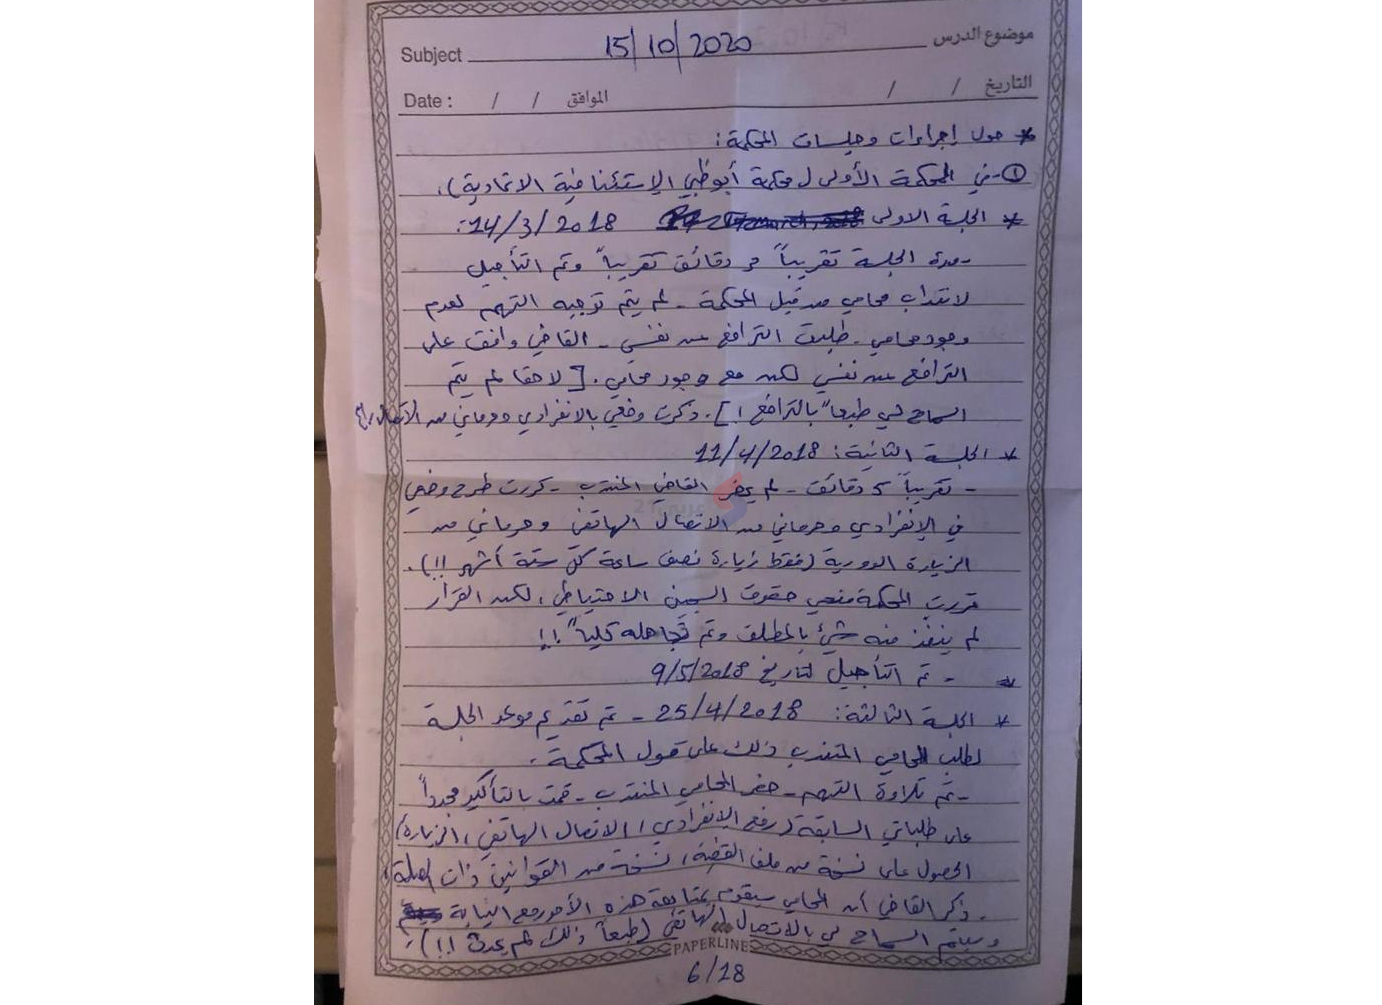 موضوع الدرس 15/10/2020 Subject
التاريخ / / الموافق / / Date :
* حول إجراءات وجلسات المحكمة:
① - في المحكمة الأولى (محكمة أبوظبي الإستئنافية الاتحادية).
* الجلسة الاولى 14/3/2018:
- مدة الجلسة تقريباً دقائق تقريباً وتم التأجيل
لانتداب محامي من قبل المحكمة - لم يتم توجيه التهم لعدم
وجود محامي - طلبت الترافع عن نفسي - القاضي وافق على
الترافع عن نفسي لكن مع وجود محامي. [لاحقا لم يتم
السماح لي طبعاً بالترافع!]. ذكرت وضعي بالانفرادي وحرماني من الاتصال
* الجلسة الثانية: 11/4/2018
- تقريباً 5 دقائق - لم يحضر القاضي المنتدب - كررت طرح وضعي
في الإنفرادي وحرماني من الاتصال الهاتفي وحرماني من
الزيارة الدورية (فقط زيارة نصف ساعة كل ستة أشهر !!).
قررت المحكمة منحي حقوق السجين الاحتياطي، لكن القرار
لم ينفذ منه شيئ بالمطلق وتم تجاهله كلياً !!
* - تم التأجيل لتاريخ 9/5/2018
* الجلسة الثالثة: 25/4/2018 - تم تقديم موعد الجلسة
لطلب المحامي المنتدب ذلك على قول المحكمة.
- تم تلاوة التهم - حضر المحامي المنتدب - قمت بالتأكيد مجدداً
على طلباتي السابقة (رفع الإنفرادي، الاتصال الهاتفي، الزيارة)
الحصول على نسخة من ملف القضية، نسخة من القوانين ذات الصلة.
- ذكر القاضي أن المحامي سيقوم بمتابعة هذه الأمور مع النيابة
وسيتم السماح لي بالاتصال الهاتفي (طبعاً ذلك لم يحدث !!).
PAPERLINE
6/18